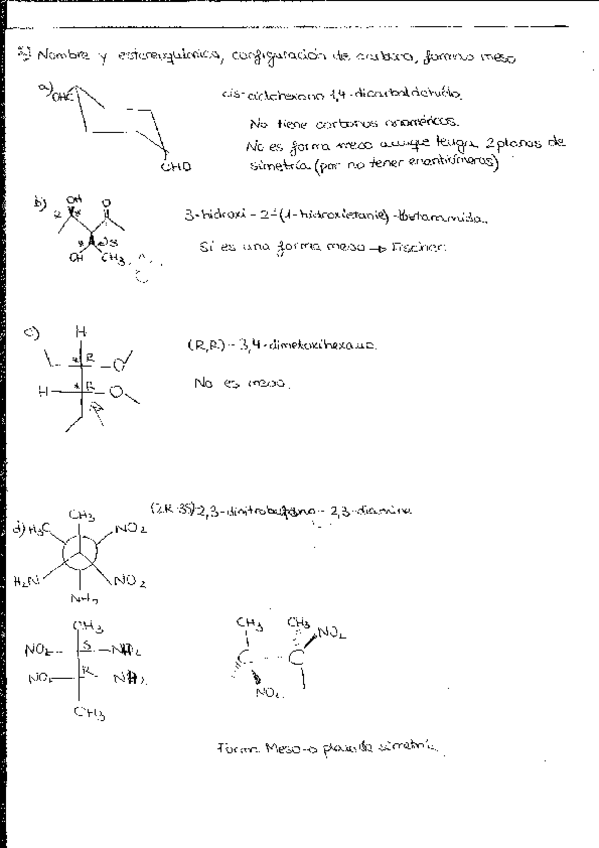 Nombre y estereoquímica, configuración de carbono, formas meso
a) OHC
cis-ciclohexano 1,4-dicarbaldehído.
No tiene carbonos anoméricos.
No es forma meso aunque tenga 2 planos de
simetría (por no tener enantiómeros)
CHO
b) OH O
R * * S
OH CH3
3-hidroxi-2-(1-hidroxietanil)-butanamida.
Sí es una forma meso → Fischer.
c) H
* R O
H * R O
R
(R,R)-3,4-dimetoxihexano.
No es meso.
(2R,3S)-2,3-dinitrobutano-2,3-diamina
d) H3C CH3 NO2
H2N NO2
NH2
CH3
NO2 S NH2
NO2 R NH2
CH3
CH3 CH3 NO2
C C
NO2
Forma Meso → plano de simetría